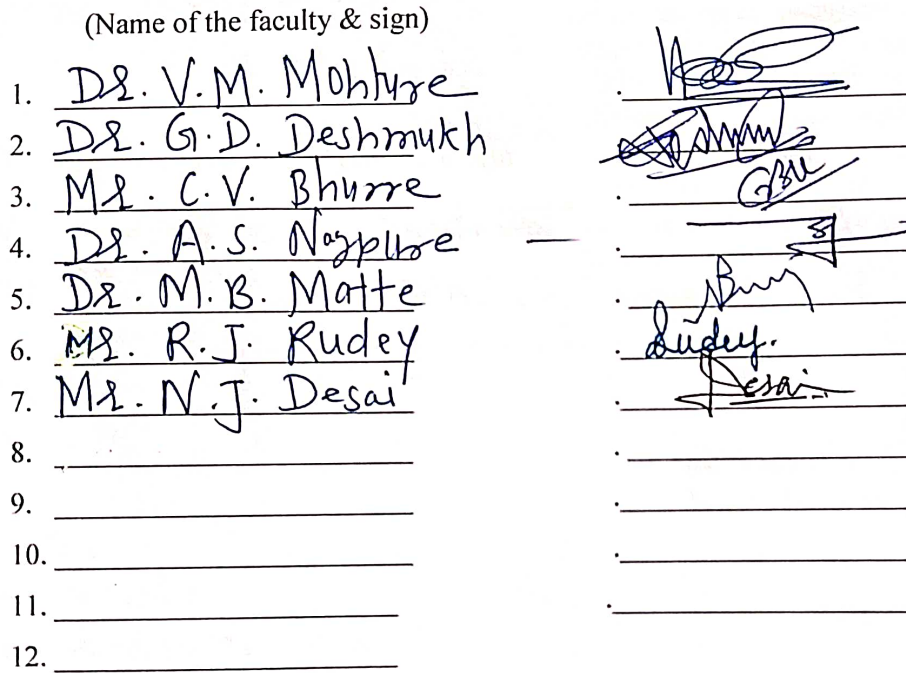 (Name of the faculty & sign)
1. Dr. V. M. Mohture
2. Dr. G. D. Deshmukh
3. Mr. C. V. Bhurre
4. Dr. A. S. Nagpure
5. Dr. M. B. Matte
6. Mr. R. J. Rudey Rudey.
7. Mr. N. J. Desai Desai
8.
9.
10.
11.
12.